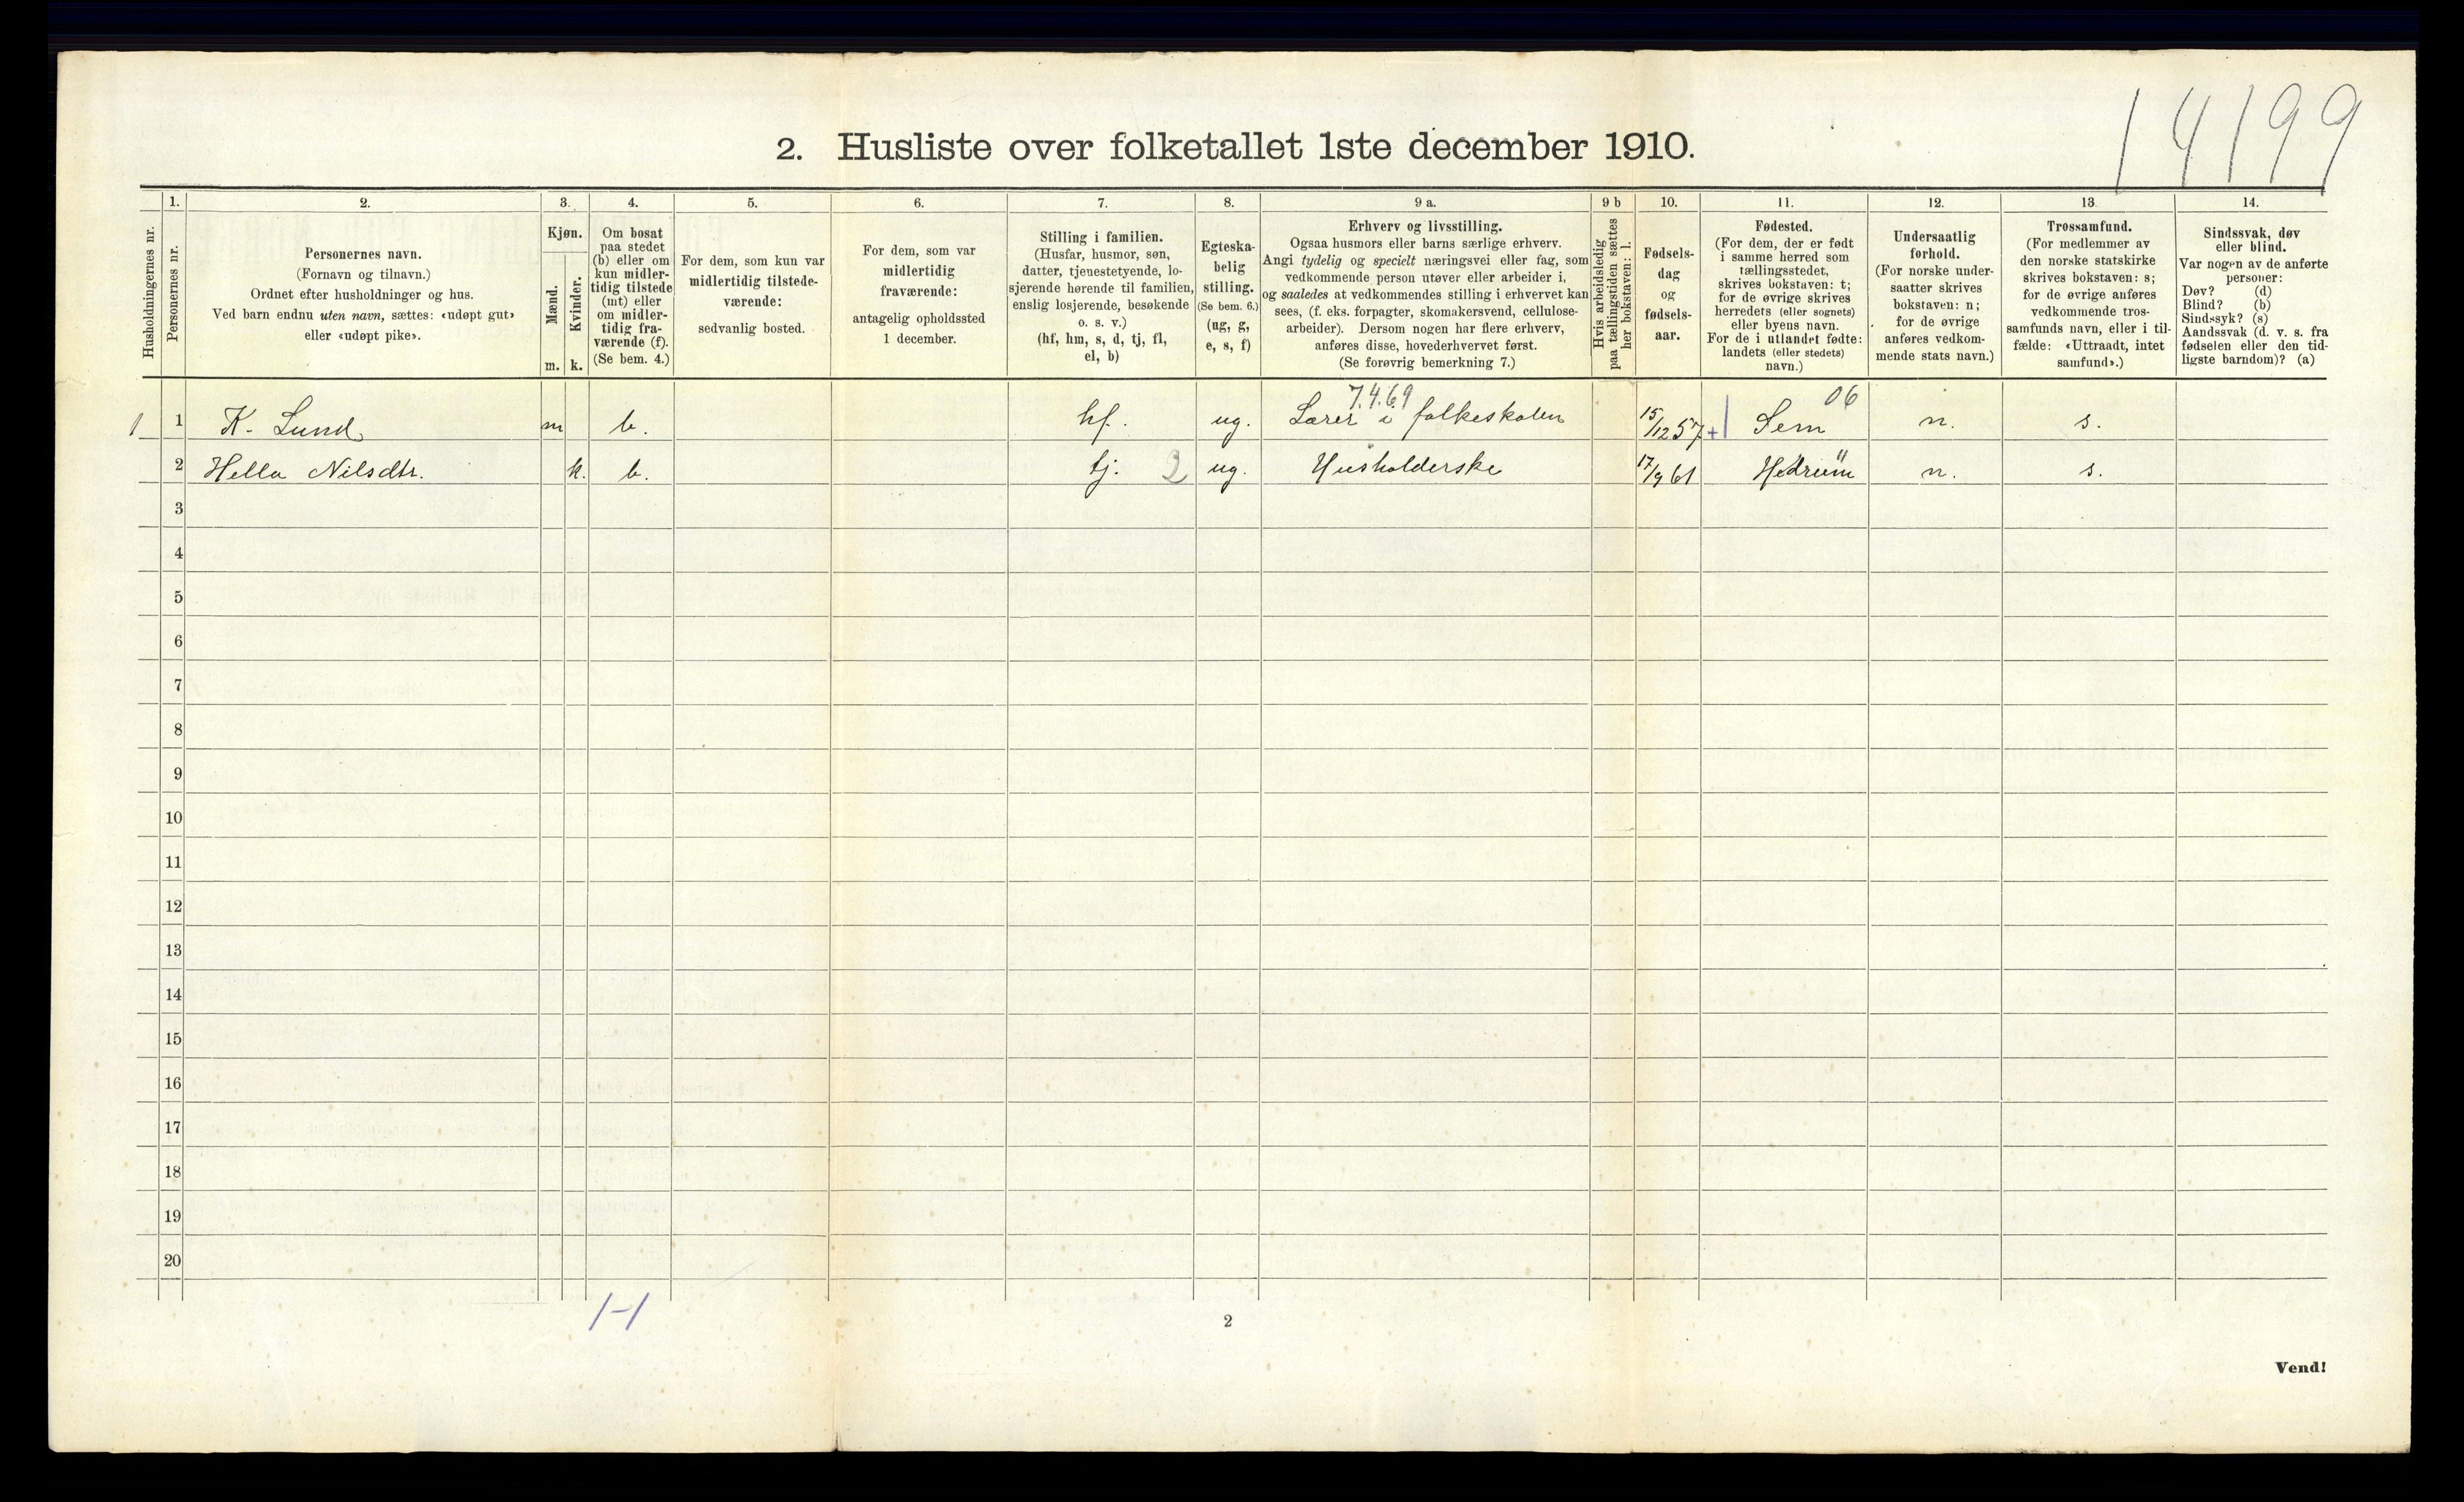 14199
2. Husliste over folketallet 1ste december 1910.
Husholdningernes nr.
1.
Personernes nr.
2.
Personernes navn.
(Fornavn og tilnavn.)
Ordnet efter husholdninger og hus.
Ved barn endnu uten navn, sættes: «udøpt gut»
eller «udøpt pike».
3.
Kjøn.
Mænd.
Kvinder.
m. k.
4.
Om bosat
paa stedet
(b) eller om
kun midler-
tidig tilstede
(mt) eller
om midler-
tidig fra-
værende (f).
(Se bem. 4.)
5.
For dem, som kun var
midlertidig tilstede-
værende:
sedvanlig bosted.
6.
For dem, som var
midlertidig
fraværende:
antagelig opholdssted
1 december.
7.
Stilling i familien.
(Husfar, husmor, søn,
datter, tjenestetyende, lo-
sjerende hørende til familien,
enslig losjerende, besøkende
o. s. v.)
(hf, hm, s, d, tj, fl,
el, b)
8.
Egteska-
belig
stilling.
(Se bem. 6.)
(ug, g,
e, s, f)
9 a.
Erhverv og livsstilling.
Ogsaa husmors eller barns særlige erhverv.
Angi tydelig og specielt næringsvei eller fag, som
vedkommende person utøver eller arbeider i,
og saaledes at vedkommendes stilling i erhvervet kan
sees, (f. eks. forpagter, skomakersvend, cellulose-
arbeider). Dersom nogen har flere erhverv,
anføres disse, hovederhvervet først.
(Se forøvrig bemerkning 7.)
9 b
Hvis arbeidsledig
paa tællingstiden sættes
her bokstaven: l.
10.
Fødsels-
dag
og
fødsels-
aar.
11.
Fødested.
(For dem, der er født
i samme herred som
tællingsstedet,
skrives bokstaven: t;
for de øvrige skrives
herredets (eller sognets)
eller byens navn.
For de i utlandet fødte:
landets (eller stedets)
navn.)
12.
Undersaatlig
forhold.
(For norske under-
saatter skrives
bokstaven: n;
for de øvrige
anføres vedkom-
mende stats navn.)
13
Trossamfund.
(For medlemmer av
den norske statskirke
skrives bokstaven: s;
for de øvrige anføres
vedkommende tros-
samfunds navn, eller i til-
fælde: «Uttraadt, intet
samfund».)
14.
Sindssvak, døv
eller blind.
Var nogen av de anførte
personer:
Døv? (d)
Blind? (b)
Sindssyk? (s)
Aandssvak (d. v. s. fra
fødselen eller den tid-
ligste barndom)? (a)
7.4.69 06
1 1 K. Lund m b. hf. ug. Lærer i folkeskolen 15/12 57 + Sem n. s.
2 Hella Nilsdtr. k. b. tj. 2 ug. Husholderske 17/9 61 Hedrum 11 n. s.
3
4
5
6
7
8
9
10
11
12
13
14
15
16
17
18
19
20
1-1
2
Vend!